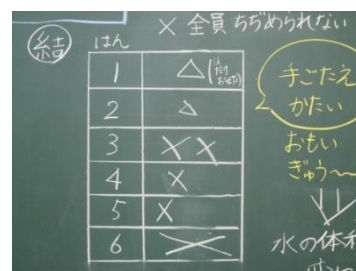 × 全員 ちぢめられない
結
はん
1 △
2 △
3 × ×
4 ×
5 ×
6 ×
手ごたえ
かたい
おもい
ぎゅう〜
水の体